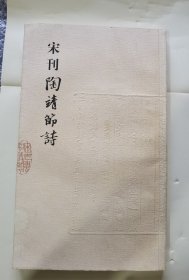 宋刊陶靖節詩